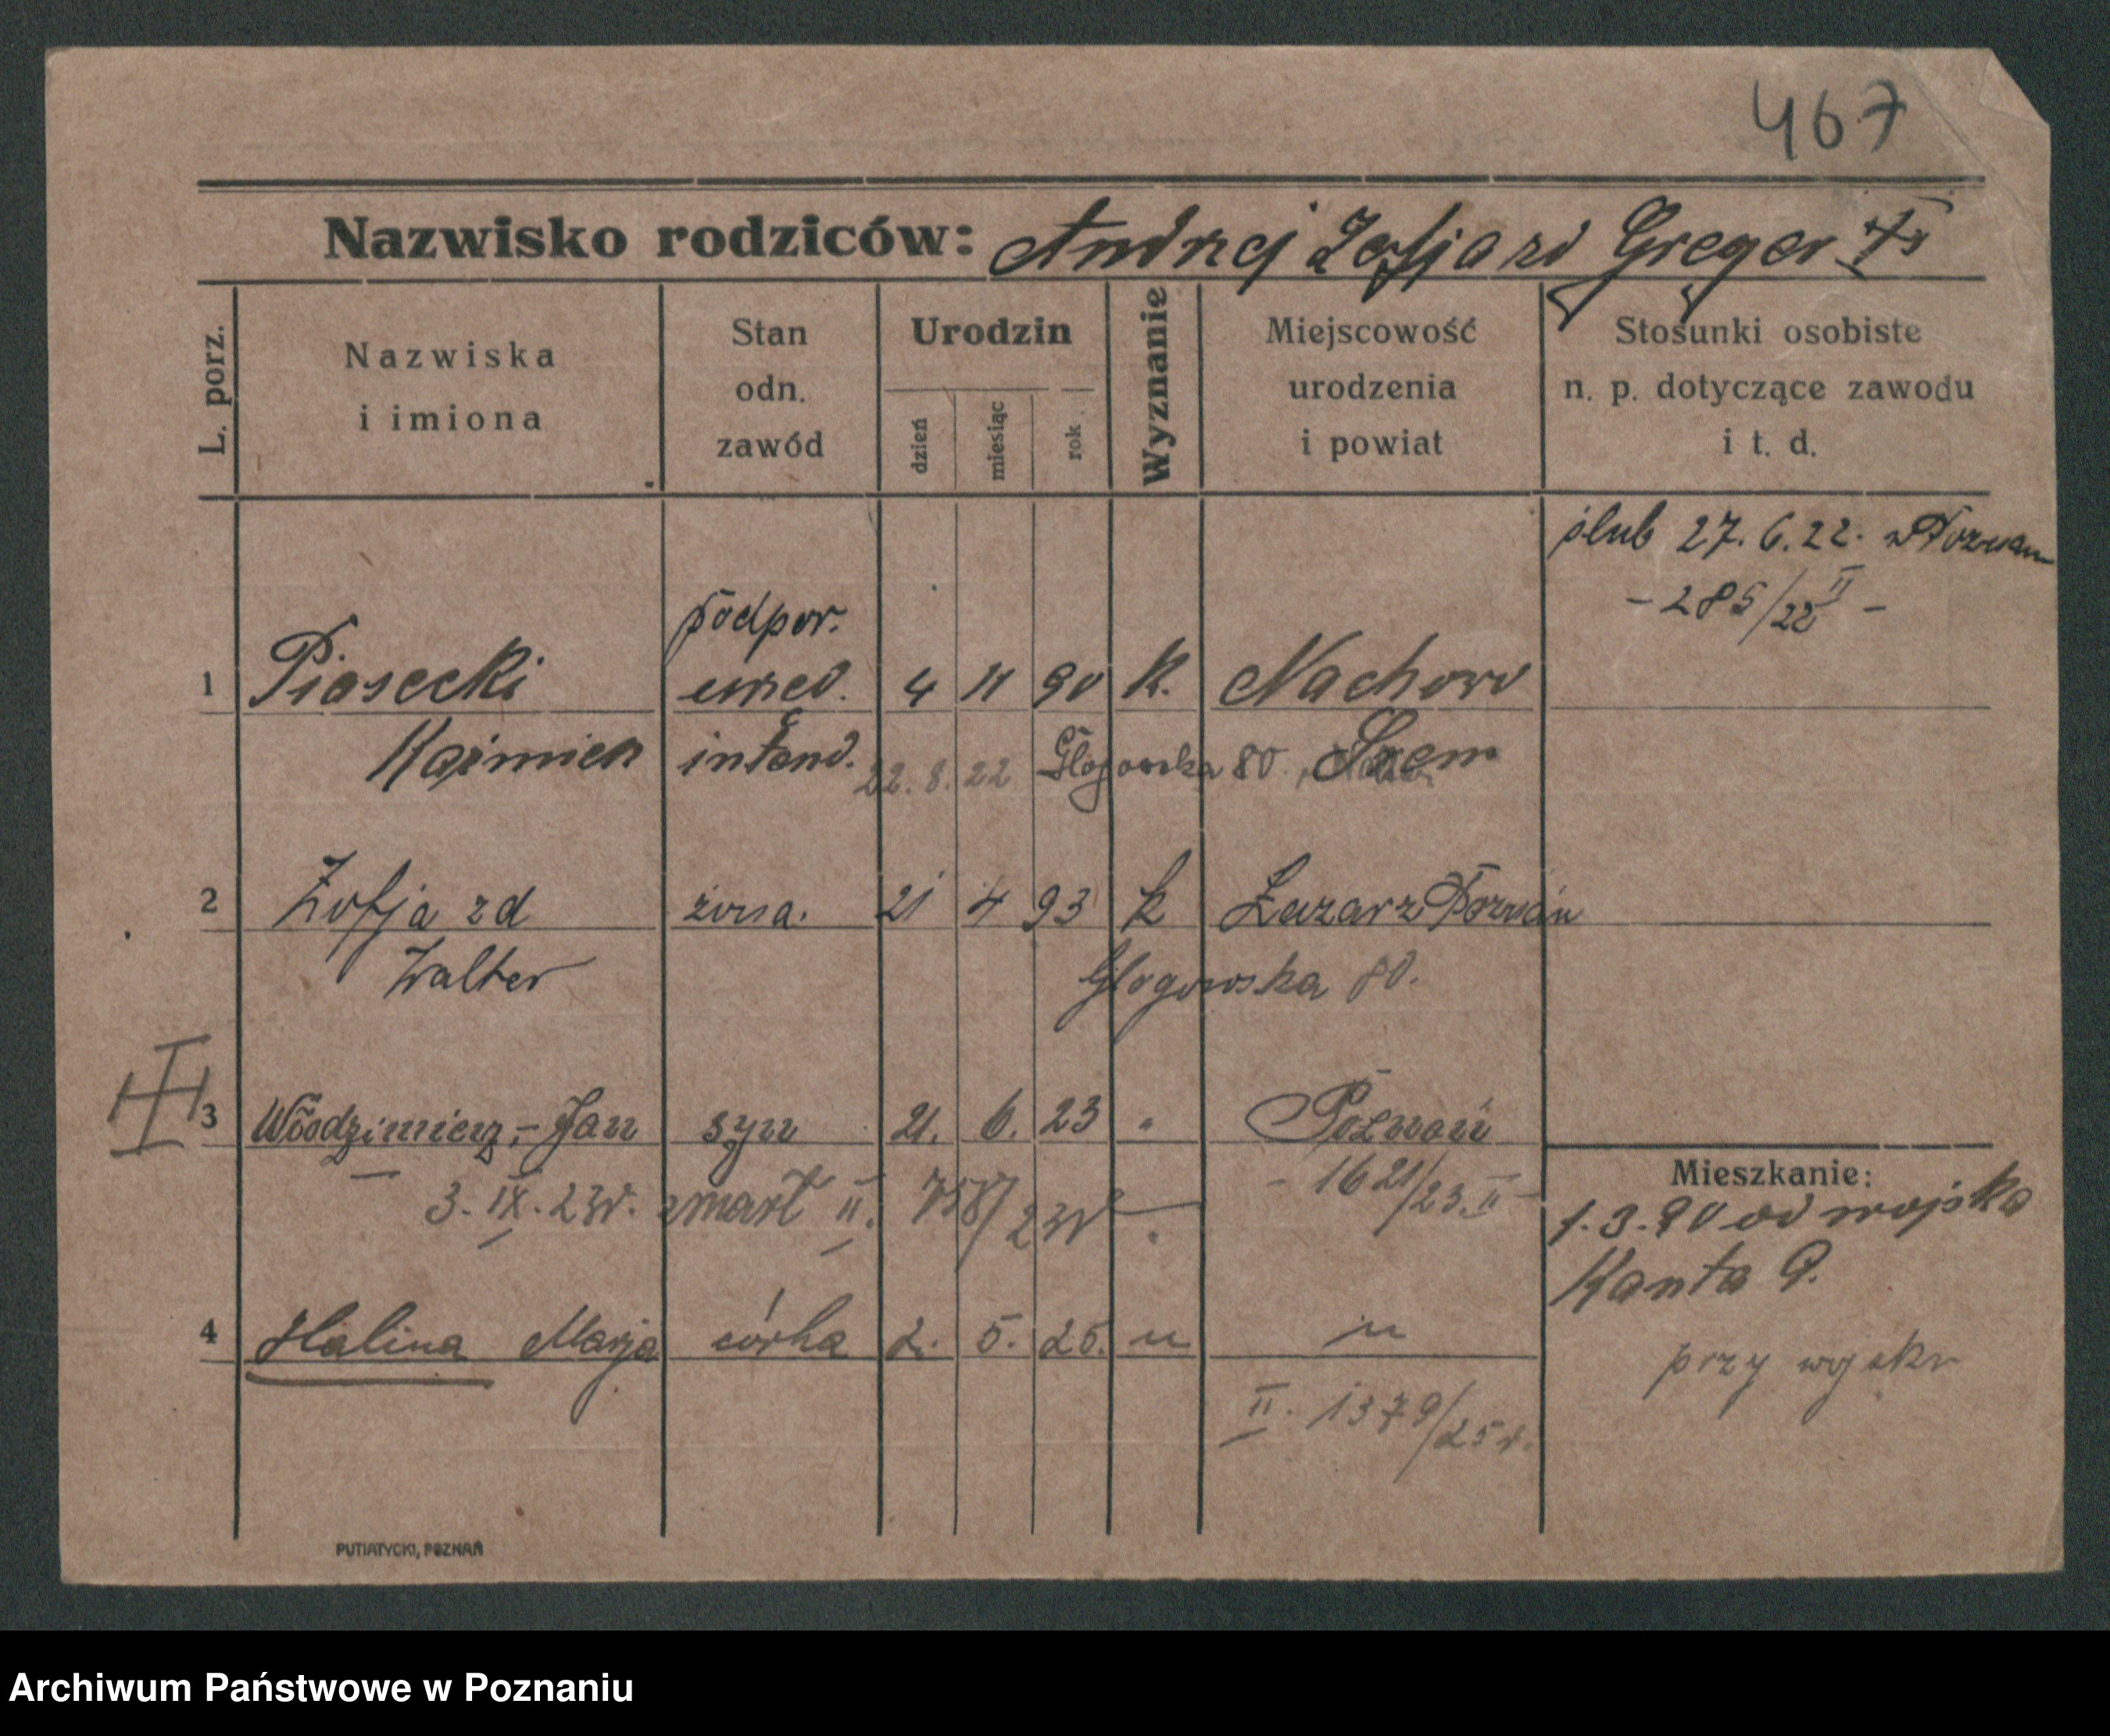 467
Nazwisko rodziców: Andrzej Zofja zd Greger
L. porz.
Nazwiska
i imiona
Stan
odn.
zawód
Urodzin
dzień
miesiąc
rok
Wyznanie
Miejscowość
urodzenia
i powiat
Stosunki osobiste
n. p. dotyczące zawodu
i t. d.
ślub 27. 6. 22. w Poznan
- 285/22 II -
podpor.
1 Piasecki urzed. 4 11 90 k. Nachowo
Kaźmierz intend. 22. 8. 22 Głogowska 80. Śrem
2 Zofja zd żona. 21 4 93 k Łazarz Poznań
Walter Głogowska 80.
3 Włodzimierz-Jan syn 21. 6. 23 " Poznań
- 1621/23. II -
3. IX. 23r. zmarł II. 758/23r
Mieszkanie:
1. 3. 20 od wojska
Kanta 9.
przy wojsku
4 Halina Marja córka 2. 5. 25. " "
II. 1379/25 r.
PUTIATYCKI, POZNAŃ
Archiwum Państwowe w Poznaniu